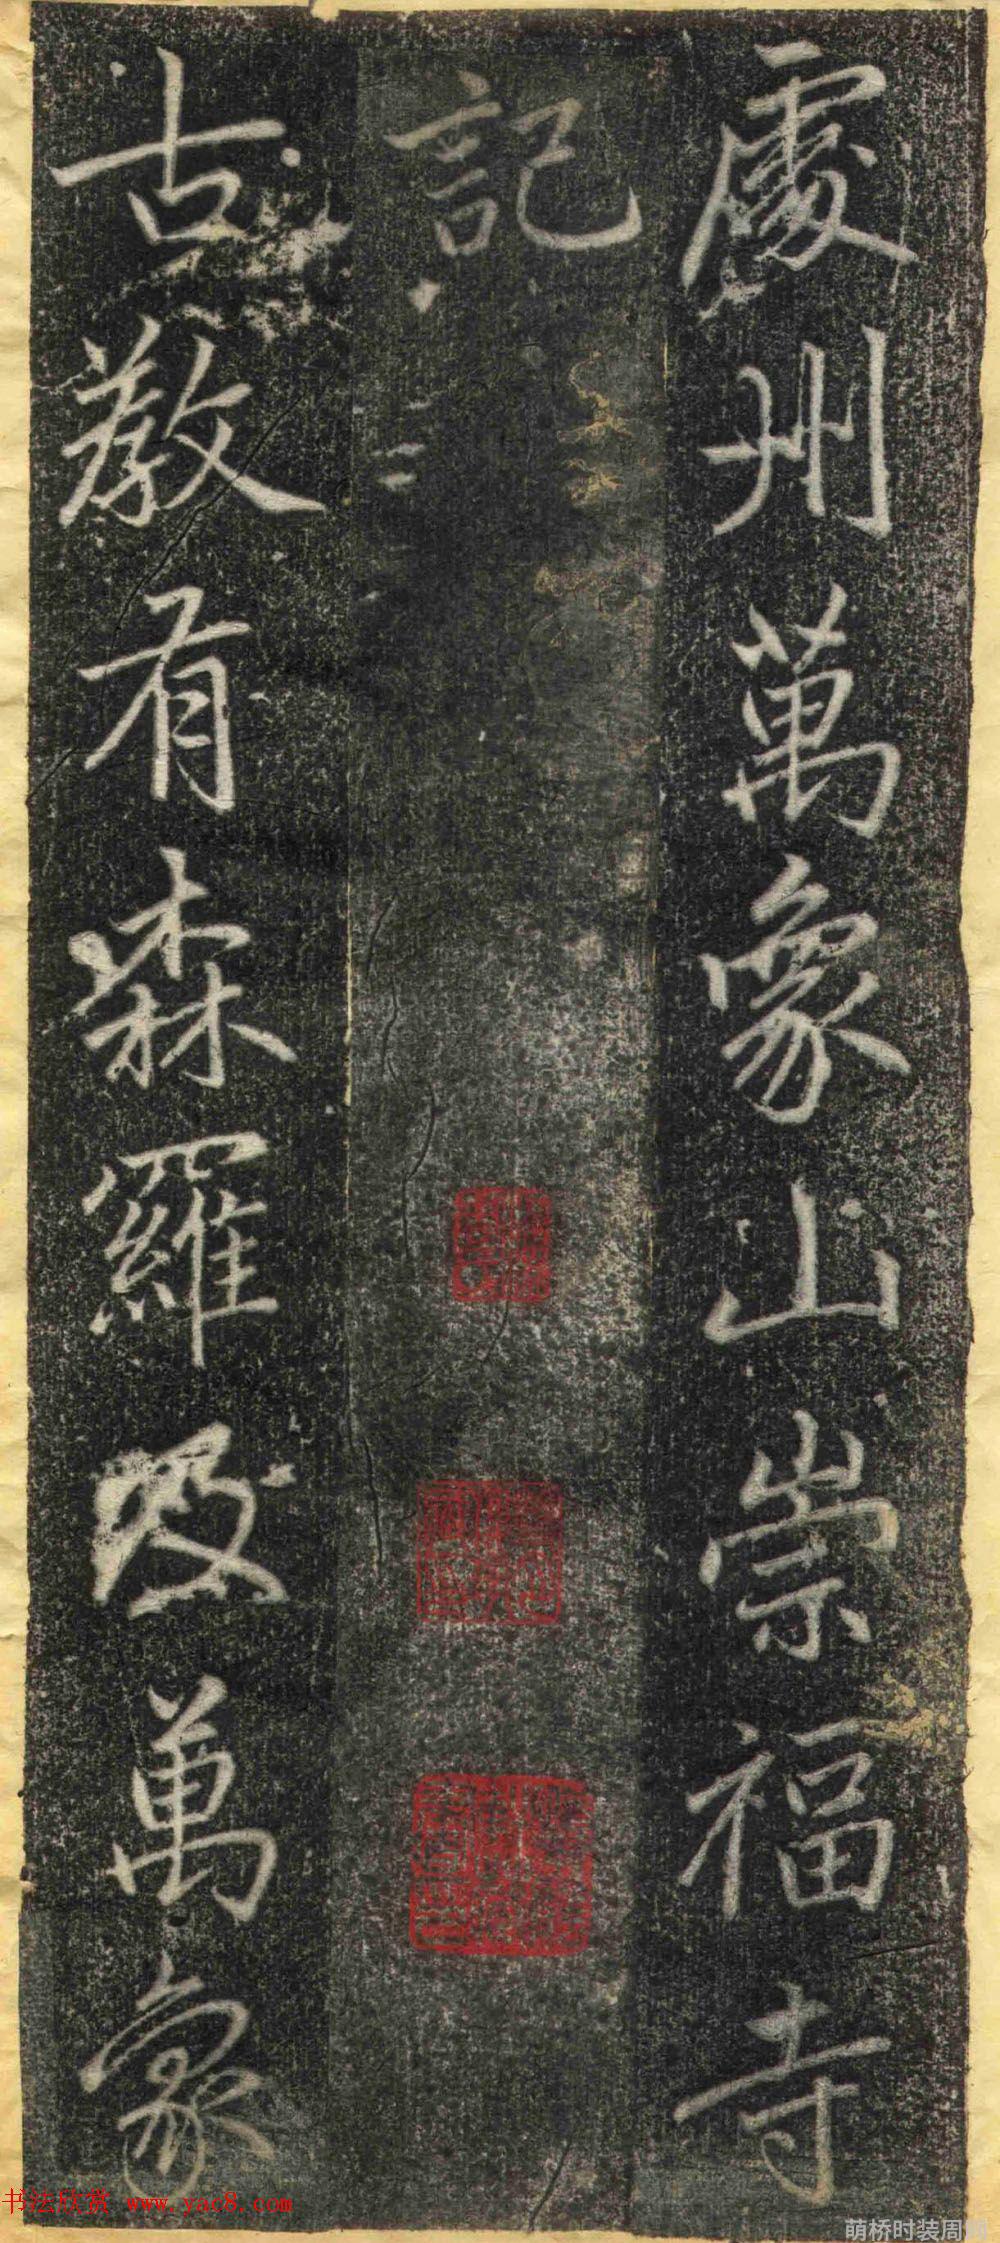 處州萬象山崇福寺
記
古教有森羅及萬象
书法欣赏 www.yac8.com
萌桥时装周